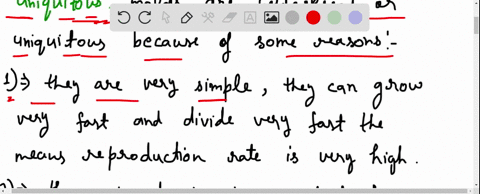 uniquitous
or
uniquitous because of some reasons:-
1)⇒ they are very simple, they can grow
very fast and divide very fast the
means reproduction rate is very high.